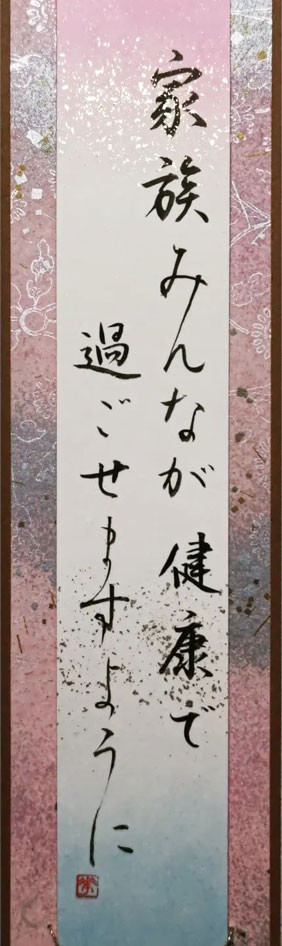 家族みんなが健康で
過ごせますように